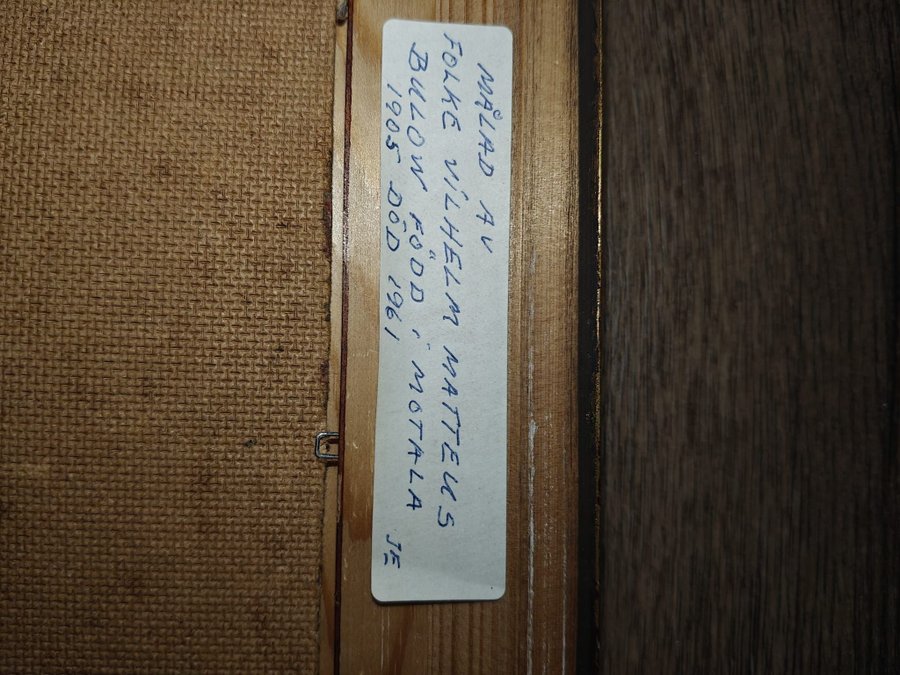 MÅLAD AV
FOLKE VILHELM MATTEUS
BULOW FÖDD i MOTALA
1905 DÖD 1961 JE